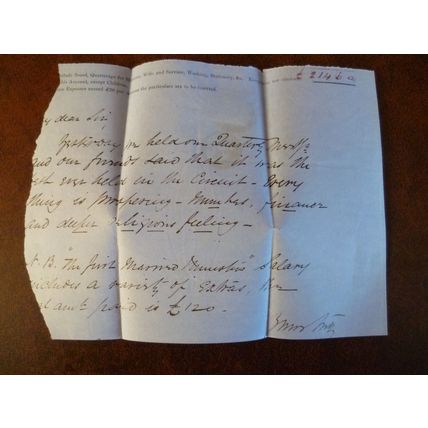 include Board, Quarterage for Minister, Wife, and Servant, Washing, Stationery, &c.
this Account, except Children
Expenses exceed £20 per the particulars are to be inserted.
£ 214 6 0
My dear Sir
Yesterday we held our Quarterly Mtg
and our friends said that it was the
best ever held in the Circuit – Every
thing is prospering – numbers, finances
and deeper religious feeling –
N. B. "The First Married Minister's" Salary
includes a variety of Extras, the
amt paid is £120.
Yours truly